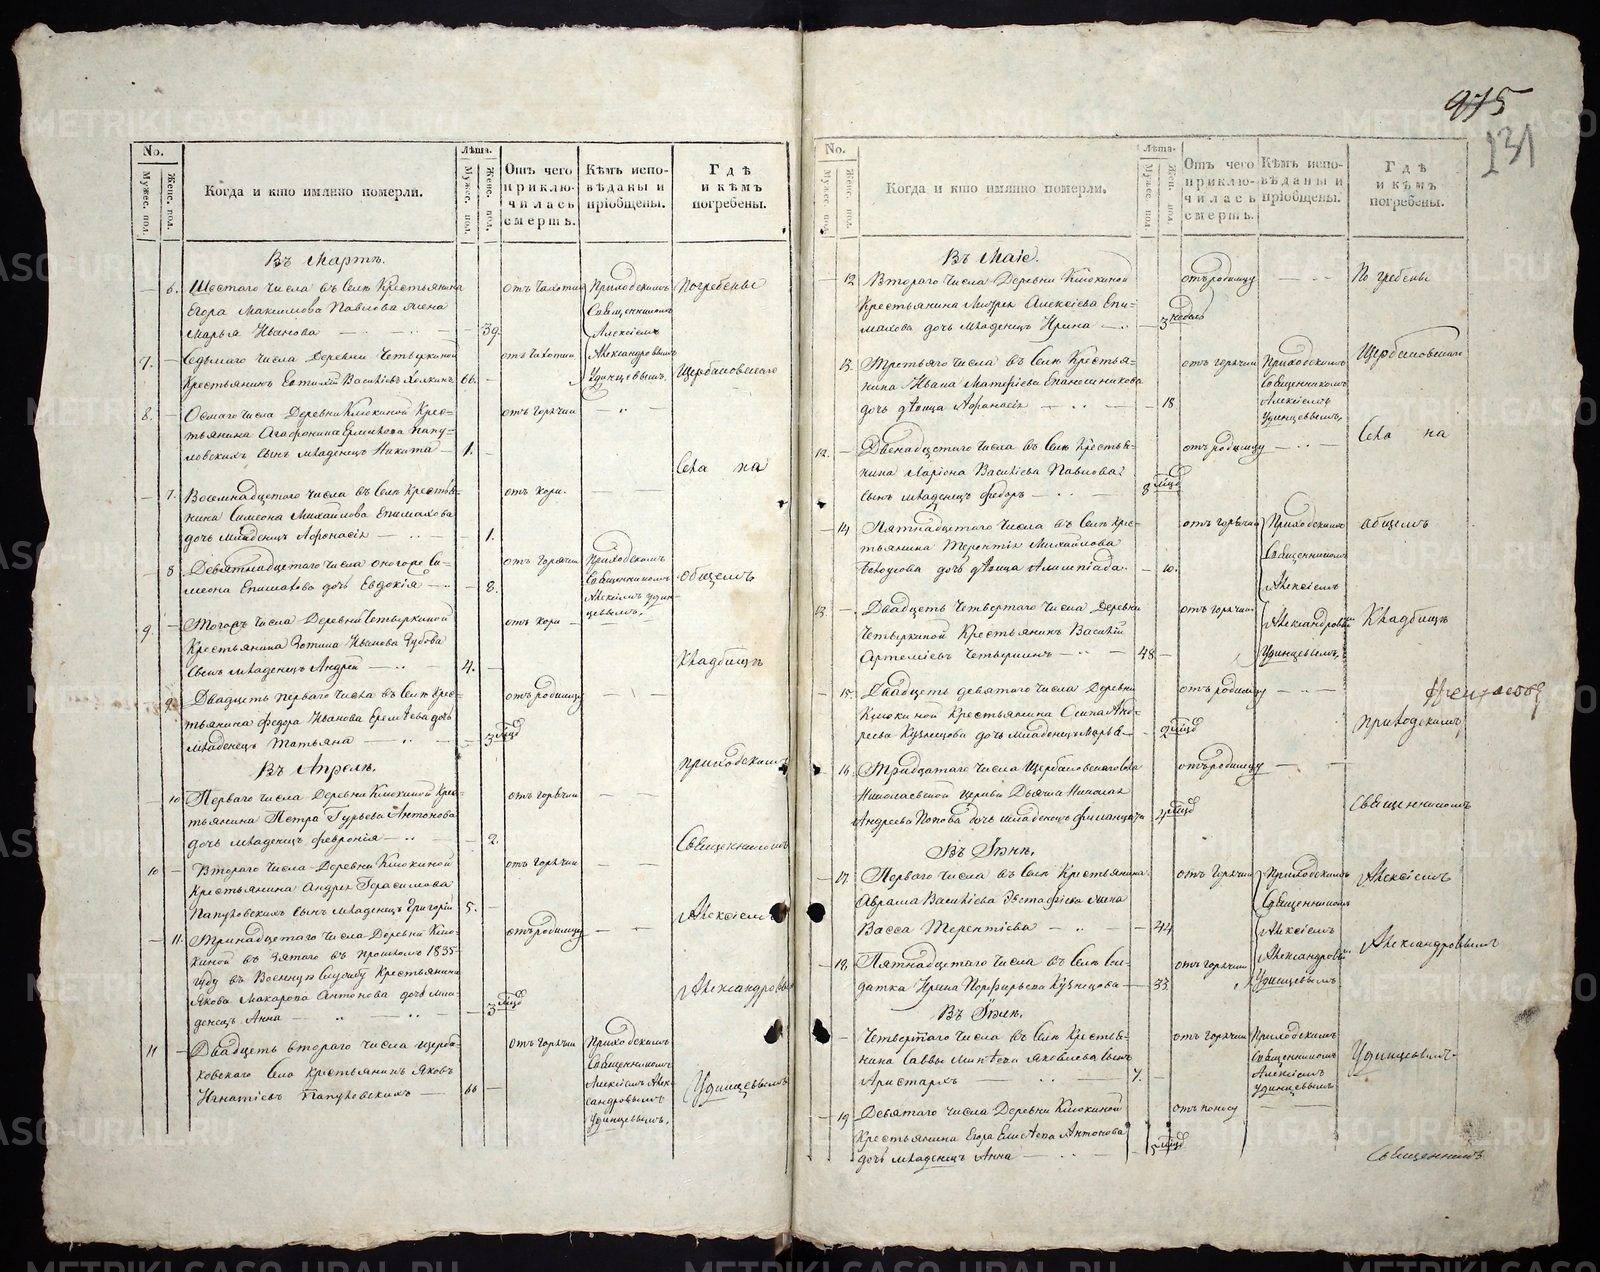 975
131
No.
Мужес. пол.
Женс. пол.
Когда и кто имянно померли.
Лѣта.
Мужес. пол.
Женс. пол.
Отъ чего приключилась смерть.
Кѣмъ исповѣданы и пріобщены.
Гдѣ и кѣмъ погребены.
Въ Мартѣ.
6. Шестаго числа въ Селѣ Крестьянина
Егора Максимова Павлова жена
Марья Иванова — 39.
отъ чахотки
Приходскимъ
Священникомъ
Алексіемъ
Александровымъ
Удинцевымъ.
7. Седьмаго числа Деревни Четыркиной
Крестьянинъ Василіевъ 66.
8. Осмаго числа Деревни Клюкиной Крес-
тьянина Ермилова Папу-
ловскихъ сынъ младенецъ Никита — 1.
отъ горячки
7. Восемнадцатаго числа въ Селѣ Крестья-
нина Симеона Михайлова Епимахова
дочь младенецъ Афонасія — 1.
отъ кори.
8. Девятнадцатаго числа оногоже Си-
меона Епимахова дочь Евдокія — 8.
отъ горячки
Приходскимъ
Священникомъ
Алексіемъ Удин-
цевымъ.
9. Тогожъ числа Деревни Четыркиной
Крестьянина Зотика Иванова Зубова
сынъ младенецъ Андрей — 4.
отъ кори
9. Двадцать перваго числа въ Селѣ Крес-
тьянина Федора Иванова Еремѣева дочь
младенецъ Татьяна — 3 мцд
отъ родимцу
Въ Апрелѣ.
10. Перваго числа Деревни Клюкиной Крес-
тьянина Петра Гурьева Антонова
дочь младенецъ Февронія — 2.
отъ горячки
10 Втораго числа Деревни Клюкиной
Крестьянина Андрея Герасимова
Папуловскихъ сынъ младенецъ Григорій 5.
отъ горячки
11. Тринадцатаго числа Деревни Клю-
киной взятаго въ прошломъ 1835
году въ Военную Службу Крестьянина
Якова Макарова Антонова дочь мла-
денецъ Анна — 3 мцд
отъ родимцу
11 Двадцать втораго числа Щерба-
ковскаго Села Крестьянинъ Яковъ
Игнатіевъ Папуловскихъ — 66
отъ горячки
Приходскимъ
Священникомъ
Алексіемъ Алек-
сандровымъ
Удинцевымъ.
Погребены
Щербаковскаго
Села на
общемъ
Кладбищѣ
приходскимъ
Священникомъ
Алексіемъ
Александровымъ
Удинцевымъ
No.
Мужес. пол.
Женс. пол.
Когда и кто имянно померли.
Лѣта.
Мужес. пол
Жен. пол.
Отъ чего приключилась смерть.
Кѣмъ исповѣданы и пріобщены.
Гдѣ и кѣмъ погребены.
Въ Маіе.
12. Втораго числа Деревни Клюкиной
Крестьянина Алексіева Епи-
махова дочь младенецъ Ирина — 3 недель
отъ родимцу
13. Третьяго числа въ Селѣ Крестья-
нина Ивана Матфіева Епанешникова
дочь дѣвица Афанасія — 18
отъ горячки
Приходскимъ
Священникомъ
Алексіемъ
Удинцевымъ.
12. Двенадцатаго числа въ Селѣ Крестья-
нина Ларіона Василіева Павлова
сынъ младенецъ Федоръ — 8 мцд
отъ родимцу
14 Пятнадцатаго числа въ Селѣ Крес-
тьянина Терентія Михайлова
Белоусова дочь дѣвица Алимпіада — 10.
отъ горячки
Приходскимъ
Священникомъ
Алексіемъ
Александровымъ
Удинцевымъ.
13. Двадцать четвертаго числа Деревни
Четыркиной Крестьянинъ Василій
Артеміевъ Четыркинъ — 48
отъ горячки
15. Двадцать девятаго числа Деревни
Клюкиной Крестьянина Осипа Анд-
реева Кузнецова дочь младенецъ Марья — 2 мцд
отъ родимцу
16. Тридцатаго числа Щербаковскаго Села
Николаевской Церкви Дьячка Николая
Андреева Попова дочь младенецъ 4 мцд
отъ родимцу
Въ Іюнѣ.
17. Перваго числа въ Селѣ Крестьянина
Аврама Василіева Эвстафіева жена
Васса Терентіева — 44
отъ горячки
Приходскимъ
Священникомъ
Алексіемъ
Александровымъ
Удинцевымъ
18. Пятнадцатаго числа въ Селѣ Сол-
датка Ирина Порфирьева Кузнецова — 33
отъ горячки
Въ Іюлѣ.
Четвертаго числа въ Селѣ Крестья-
нина Саввы Яковлева сынъ
Аристархъ — 7.
отъ горячки
Приходскимъ
Священникомъ
Алексіемъ
Удинцевымъ
19 Девятаго числа Деревни Клюкиной
Крестьянина Егора Елисѣева Антонова
дочь младенецъ Анна — 5 мцд
отъ поносу
Погребены
Щербаковскаго
Села на
общемъ
Кладбищѣ
Приходскимъ
Священникомъ
Алексіемъ
Александровымъ
Удинцевымъ
Священникъ